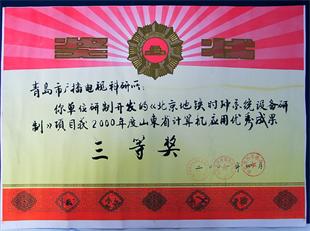 奖状
青岛市广播电视科研所：
你单位研制开发的《北京地铁时钟系统设备研
制》项目获2000年度山东省计算机应用优秀成果
三等奖